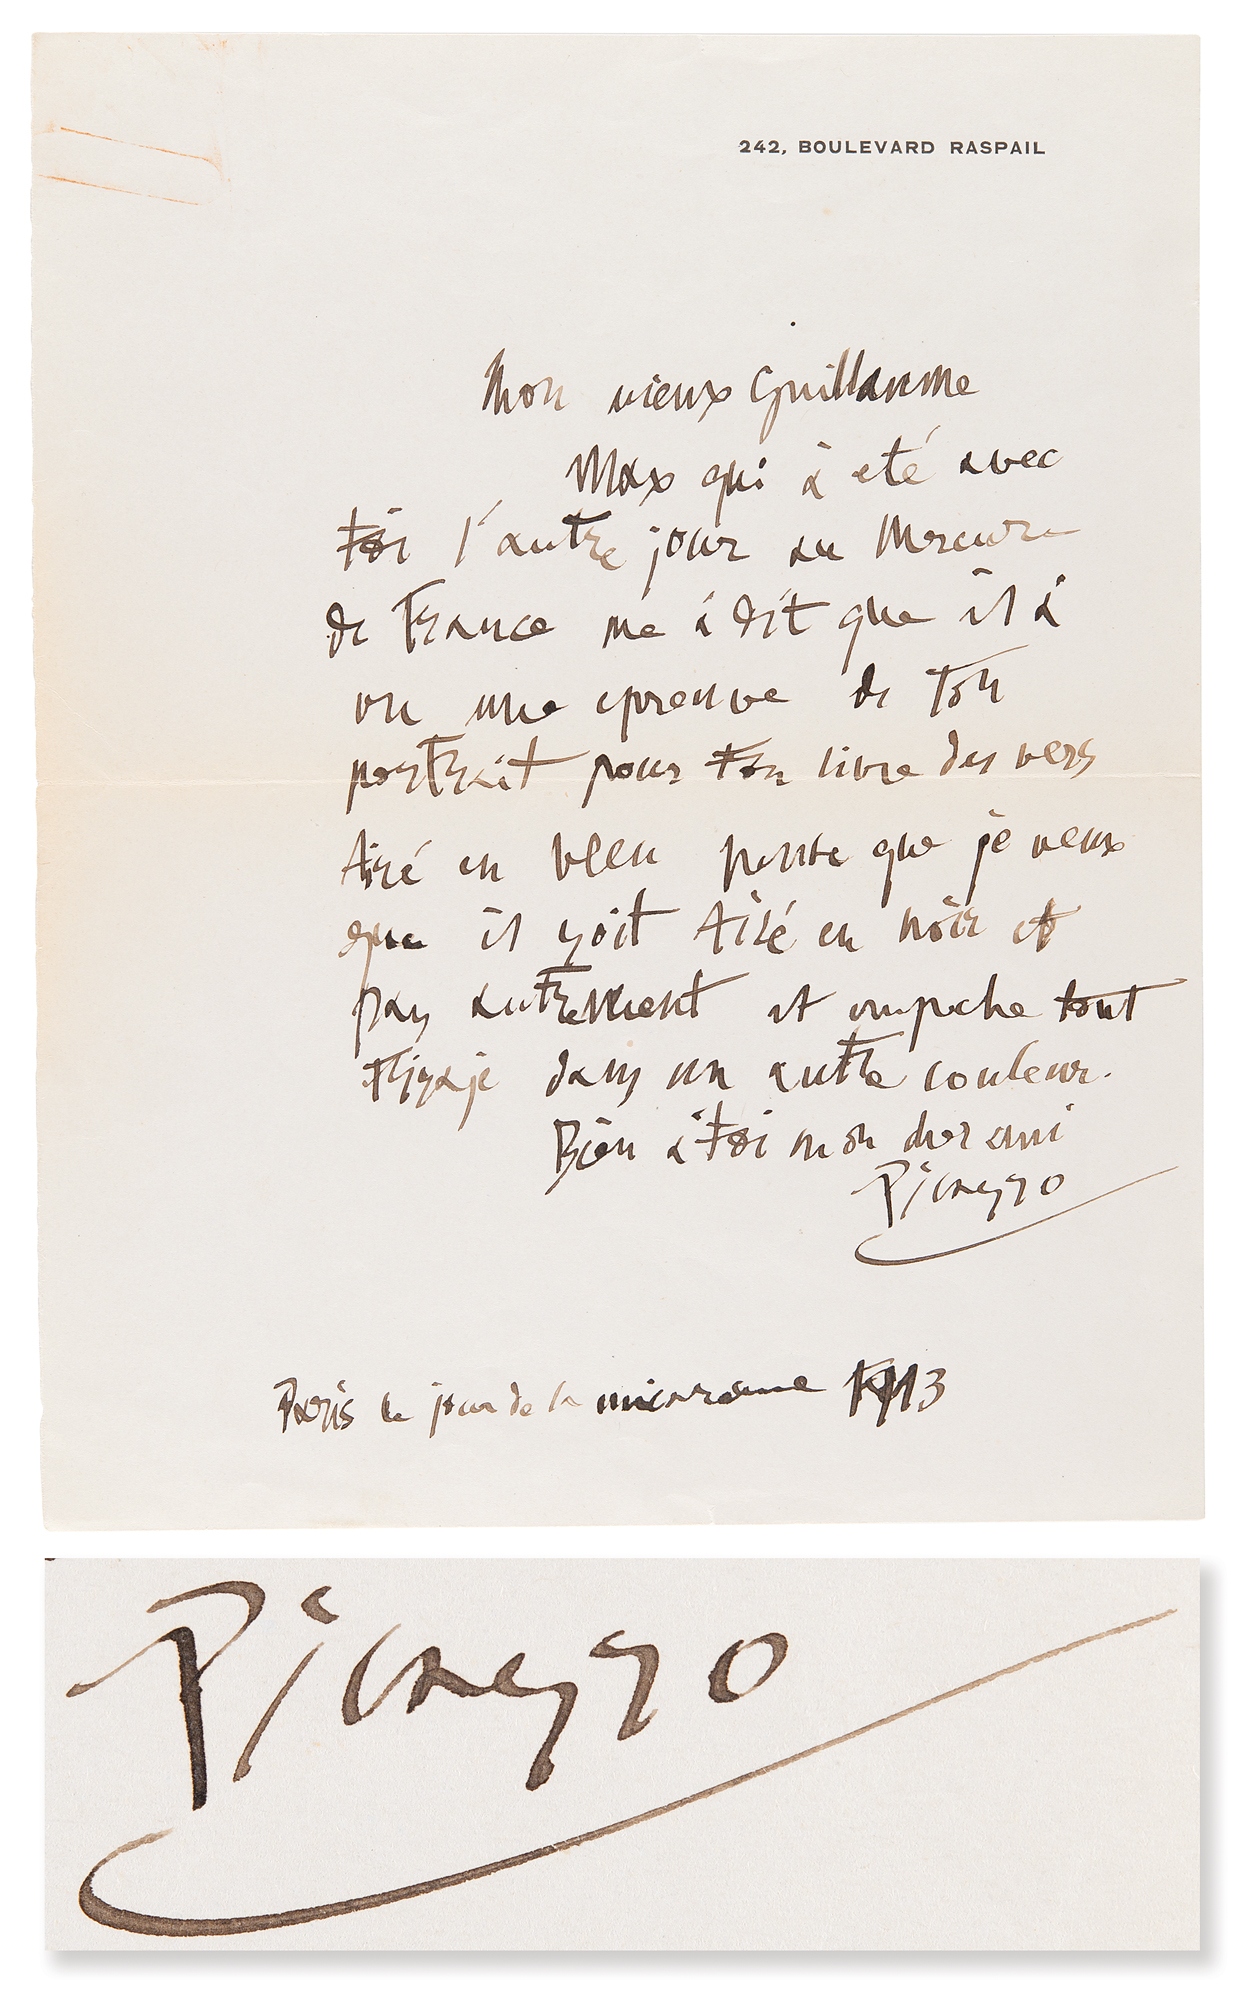 242, BOULEVARD RASPAIL
Mon vieux Guillaume
Max qui à eté avec
toi l'autre jour au Mercure
de France me à dit que il à
vu une epreuve de ton
portrait pour ton livre des vers
tiré en bleu pense que je veux
que il soit tiré en noir et
pas autrement et empeche tout
tirage dans un autre couleur.
Bien à toi mon cher ami
Picasso
Paris le jour de la micareme 1913
Picasso